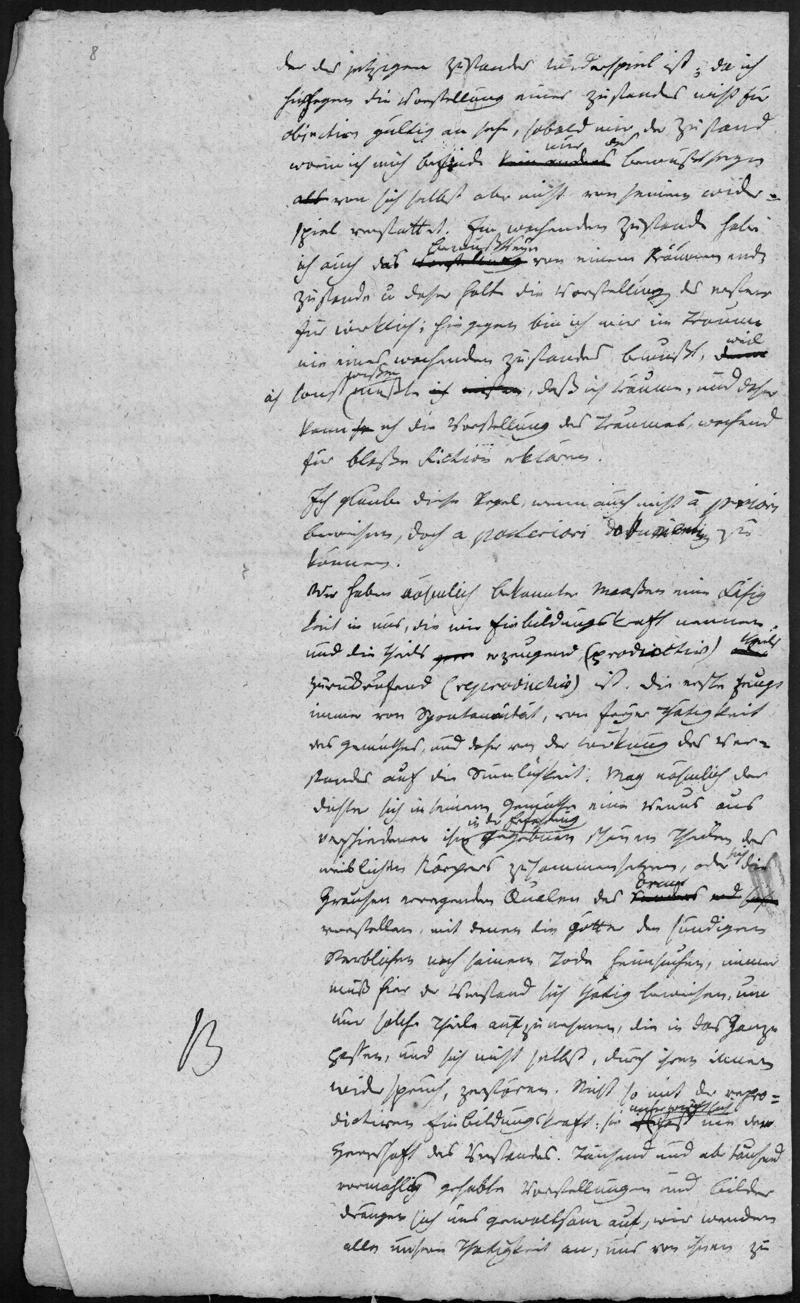 8
der des jetzigen Zustandes wiederspiel ist; da ich
hingegen die Vorstellung eines Zustandes nicht für
objectiv gültig an sehe, sobald mir der Zustand
worin ich mich befinde nur das bewustseyn
als von sich selbst aber nicht von seinem wider-
spiel verstattet. Im wachenden Zustande habe
ich auch das Bewußtseyn von einem träumenden
Zustande u daher halte die Vorstellung des erstern
für wirklich; hingegen bin ich mir im Traume
nie eines wachenden Zustandes bewußt, weil
ich sonst wissen müßte, daß ich träume, und daher
kann ich die Vorstellung des Traumes, wachend
für bloße Fiction erklären.
Ich glaube diese Regel, wenn auch nicht a priori
beweisen, doch a posteriori zu
können.
Wir haben nähmlich bekannter Maaßen eine Fähig
keit in uns, die wir Einbildungskraft nennen
und die theils erzeugend (productiv) theils
zurückrufend (reproductiv) ist. Die erste zeugt
immer von Spontaneität, von freyer Thätigkeit
des Gemüthes, und daher von der Wirkung des Ver-
standes auf die Sinnlichkeit. Mag nähmlich der
Dichter sich in seinem Gemüthe eine Venus aus
verschiedenen ihm in der Erfahrung gegebenen schönen Theilen des
weiblichen Körpers zusammensetzen, oder sich die
Grausen erregenden Qualen des Orcus
vorstellen, mit denen die Götter den sündigen
Sterblichen nach seinem Tode heimsuchen, immer
muß hier der Verstand sich thätig beweisen, um
nur solche Theile aufzunehmen, die in das Ganze
passen, und sich nicht selbst, durch ihren innern
widerspruch, zerstören. Nicht so mit der repro-
dictiven Einbildungskraft: sie nie der
Herrschaft des Verstandes. Tausend und ab tausend
vormahls gehabte Vorstellungen und Bilder
drängen sich uns gewaltsam auf, wir wenden
alle unsere Thätigkeit an, uns von ihnen zu